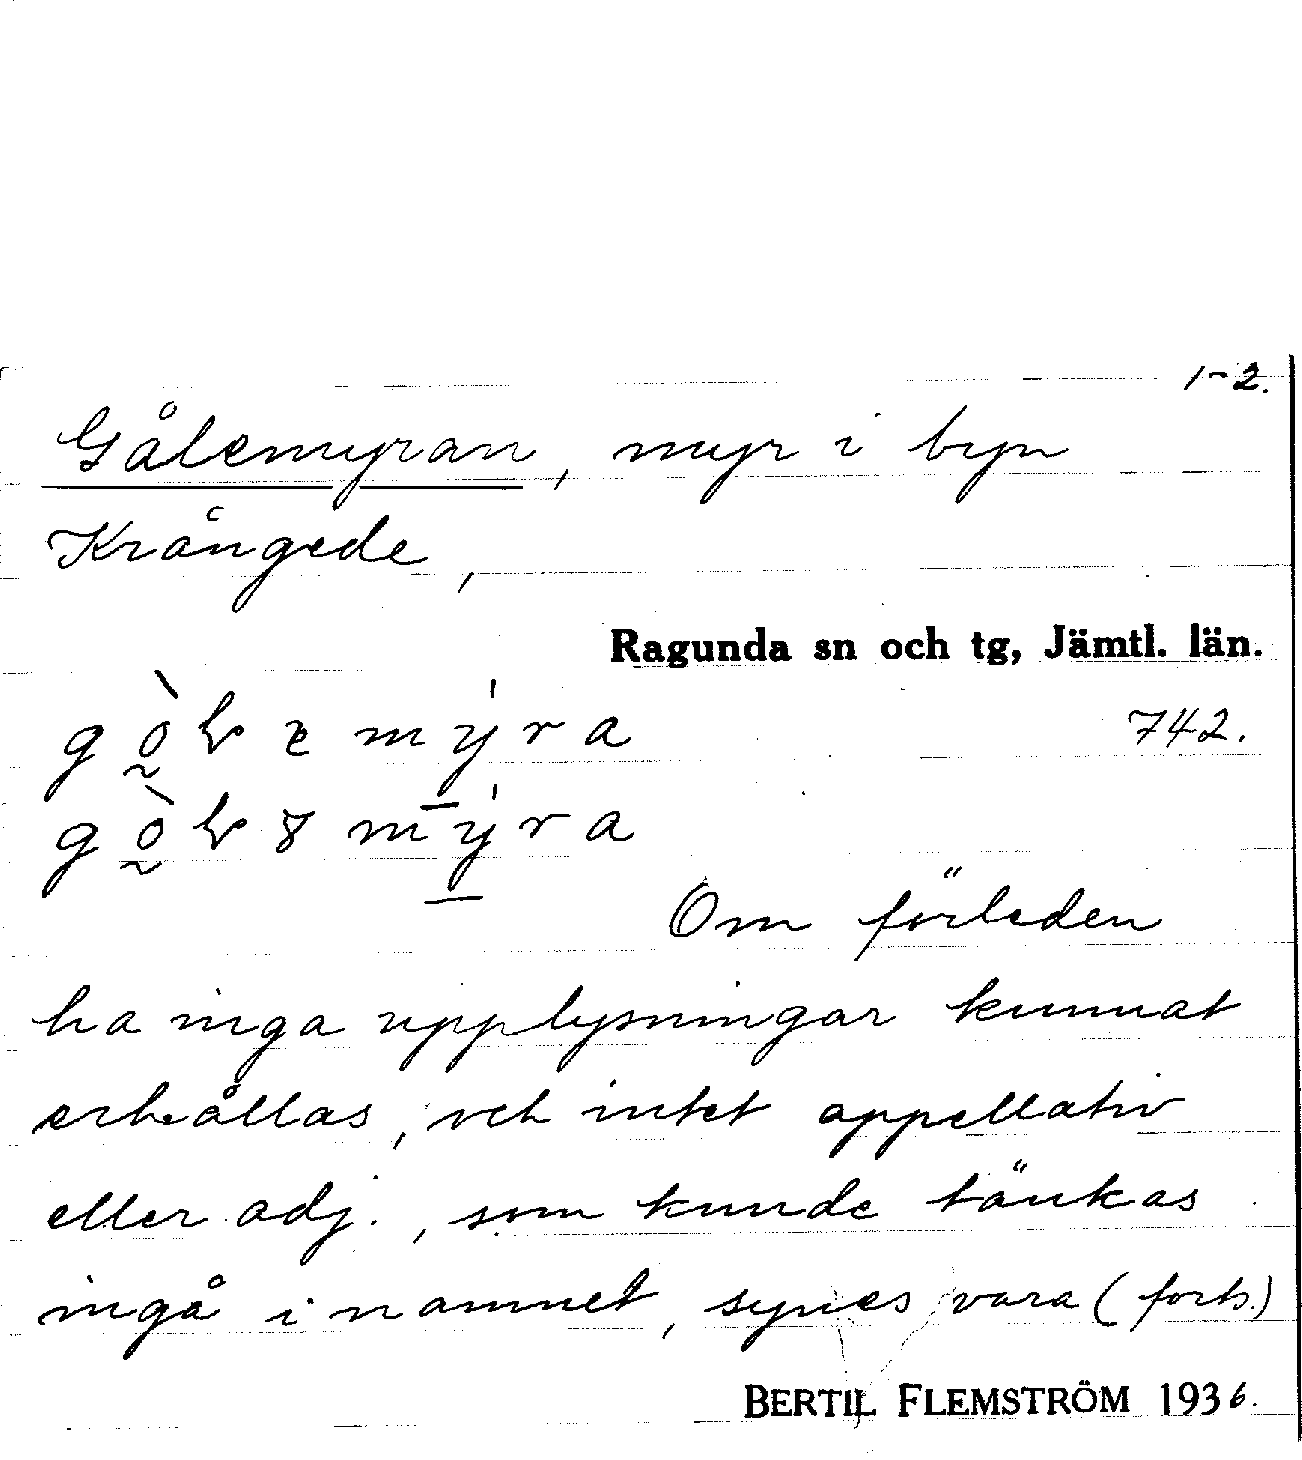 1-2.
Gålemyran, myr i byn
Krångede,
Ragunda sn och tg, Jämtl. län.
742.
Om förleden
ha inga upplysningar kunnat
erhållas, och intet appellativ
eller adj., som kunde tänkas
ingå i namnet, synes vara (forts.)
BERTIL FLEMSTRÖM 1936.